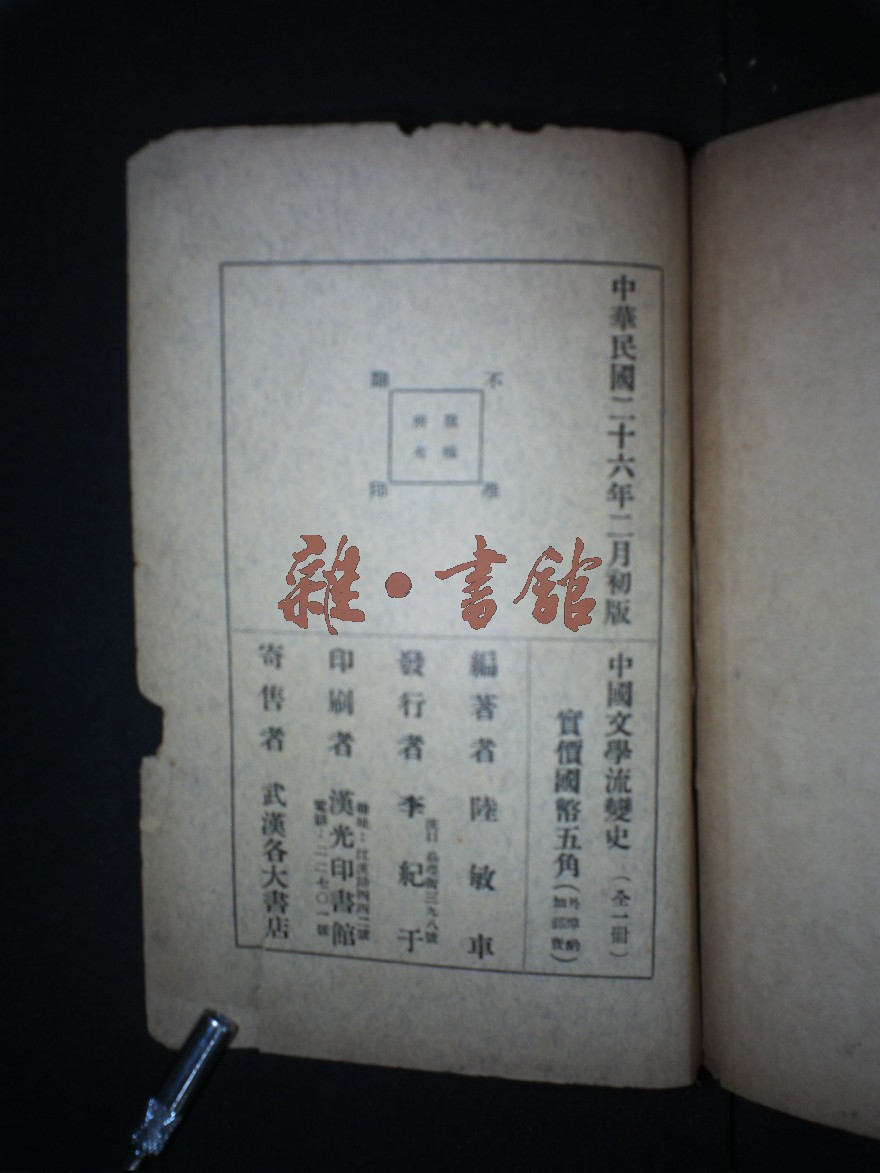 中華民國二十六年二月初版
不准
翻印
版權
所有
雜·書館
中國文學流變史（全一冊）
實價國幣五角（外埠酌加郵費）
編著者 陸敏車
發行者 李紀于
漢口
三九八號
印刷者 漢光印書館
電話：二二七〇一號
寄售者 武漢各大書店